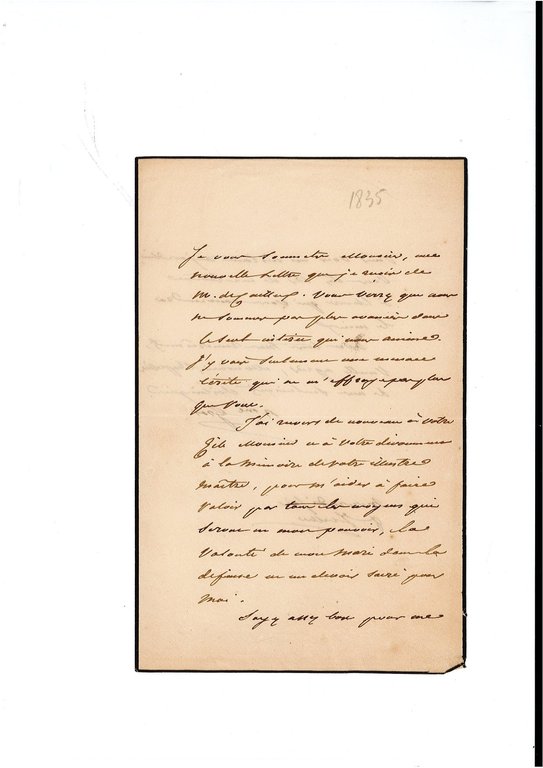 1835
Je vous soumets Monsieur, une
nouvelle lettre que je reçois de
M. de Cailleux. Vous verrez que nous
ne sommes pas plus avancés dans
le seul intérêt qui nous anime.
J'y vois seulement une menace
qui ne m'effraye pas plus
que vous.
J'ai recours de nouveau à votre
zèle Monsieur et à votre dévouement
à la mémoire de votre illustre
maître, pour m'aider à faire
valoir par tous les moyens qui
seront en mon pouvoir, la
volonté de mon mari dans la
défense est un devoir sacré pour
moi.
Soyez assez bon pour me